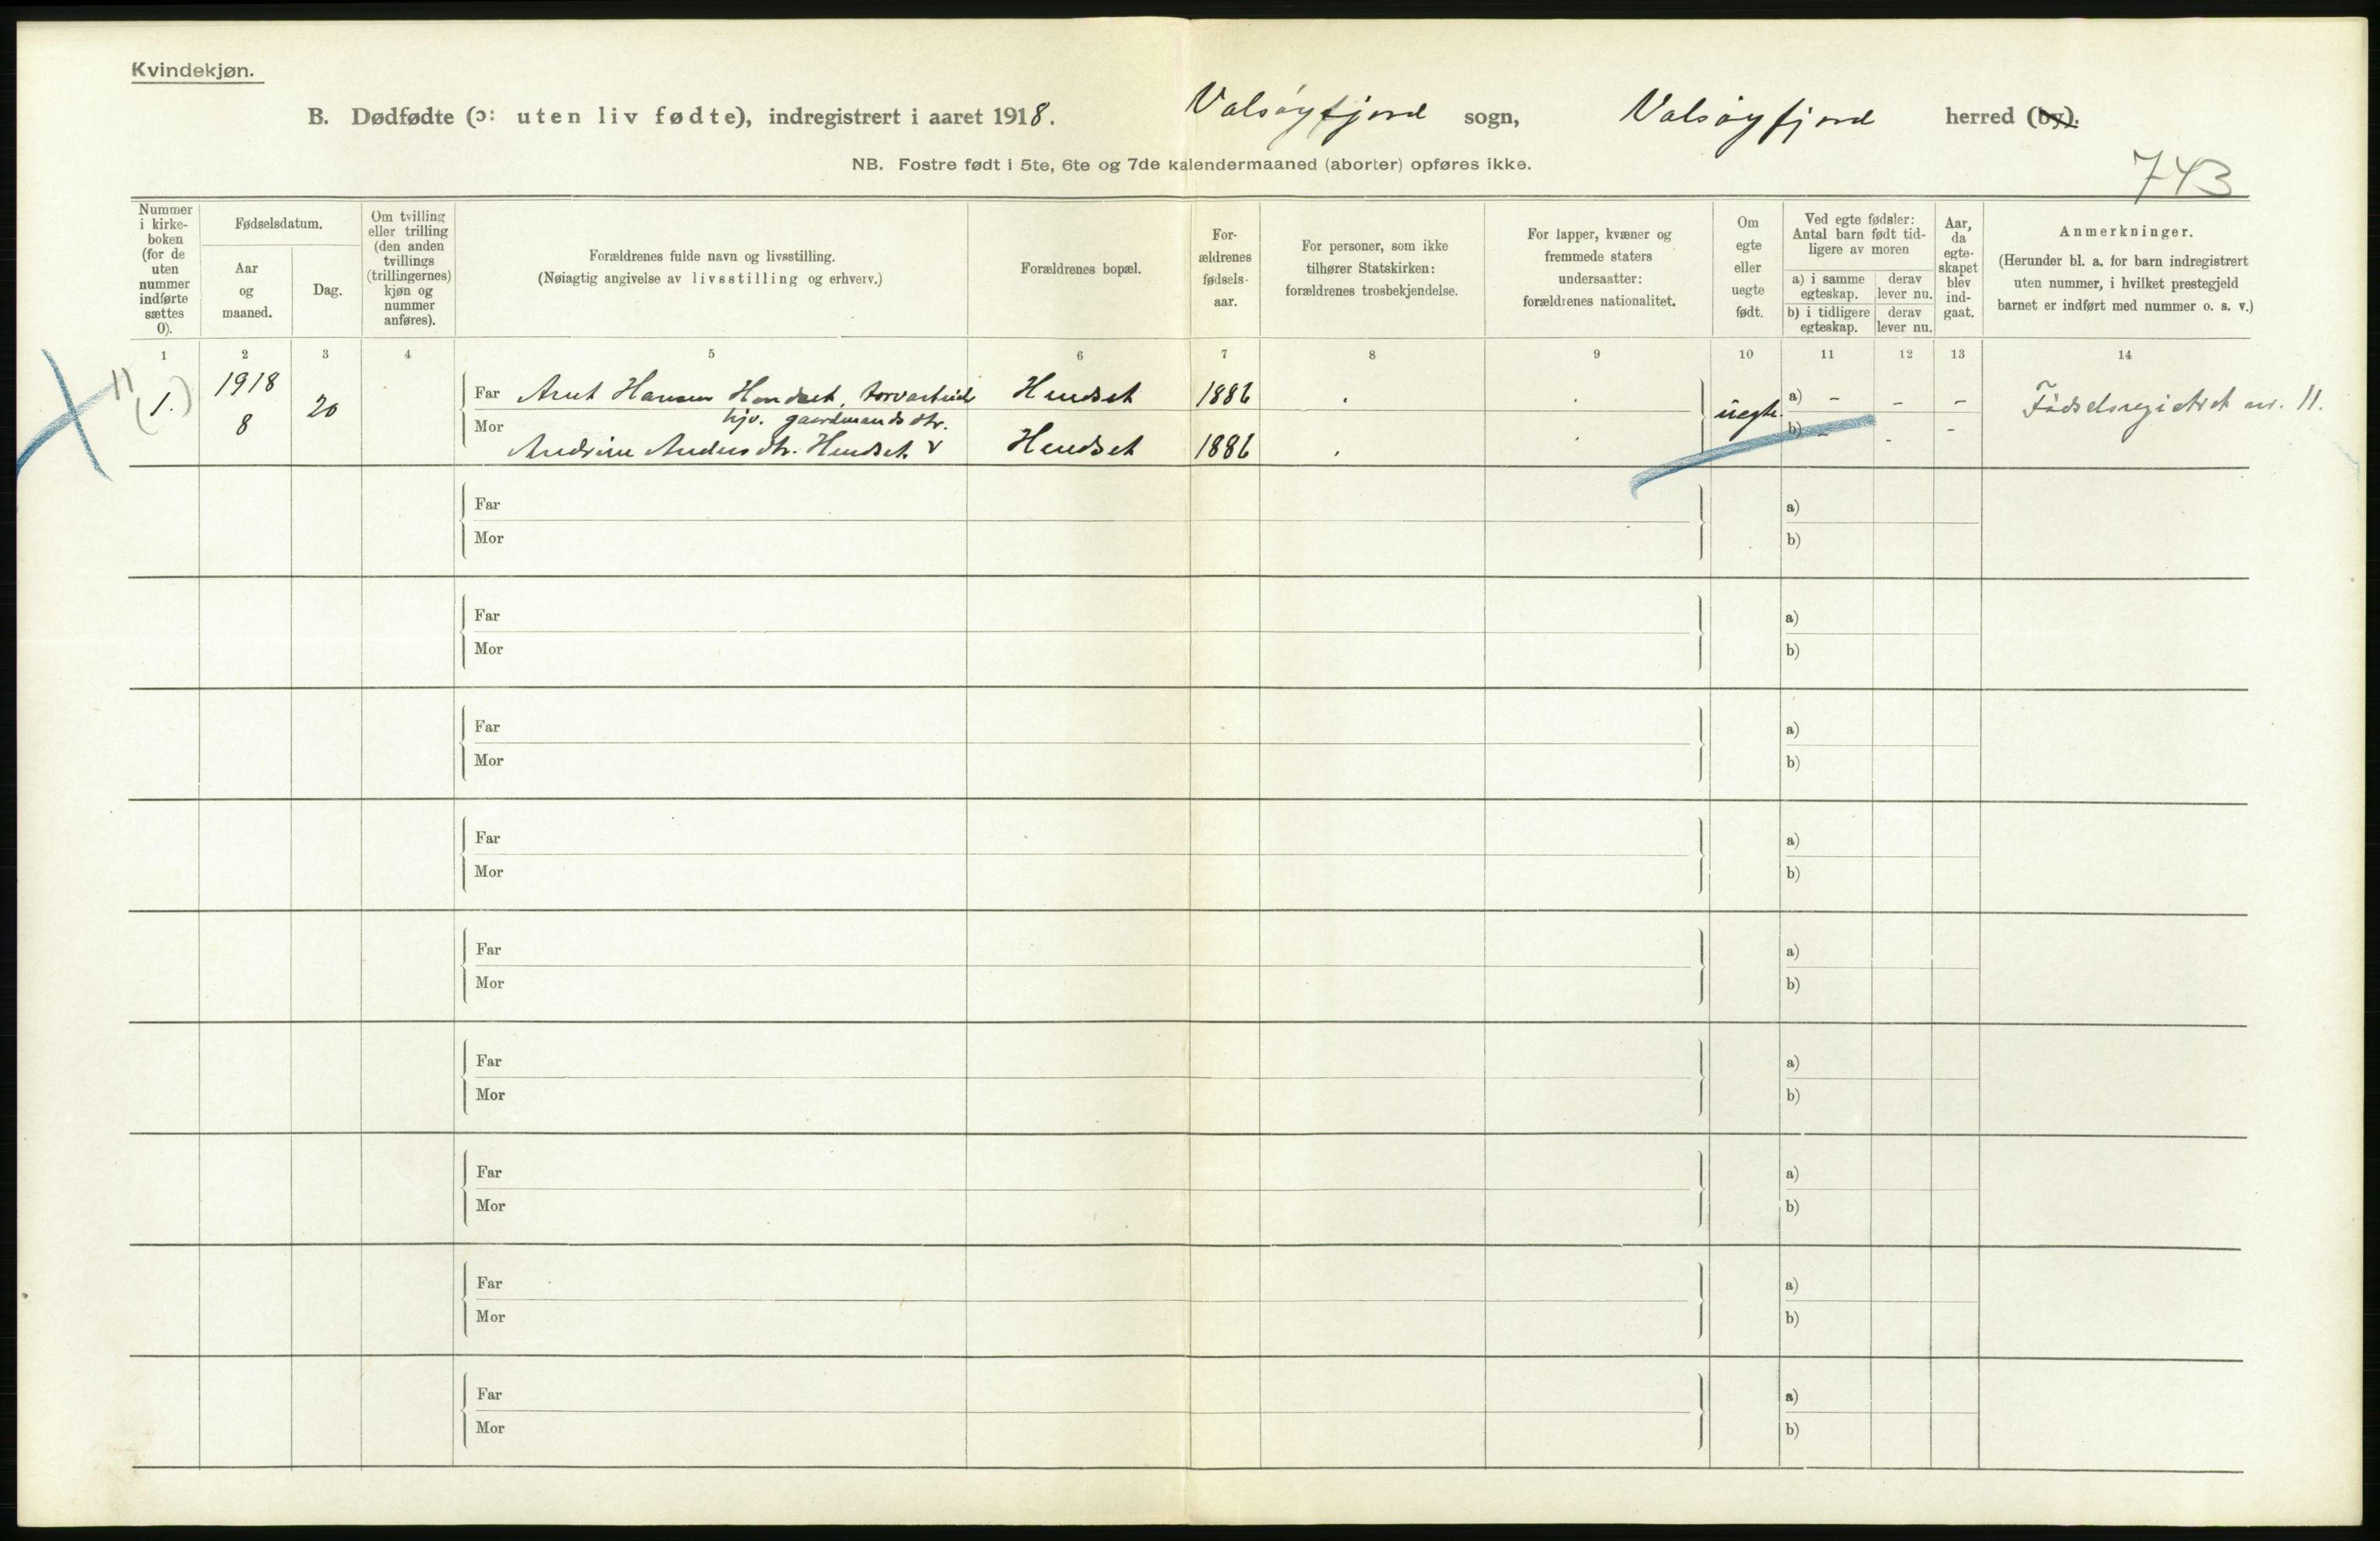 Kvindekjøn.
B. Dødfødte (ɔ: uten liv fødte), indregistrert i aaret 1918. Valsøyfjord sogn, Valsøyfjord herred (by).
NB. Fostre født i 5te, 6te og 7de kalendermaaned (aborter) opføres ikke.
743
Nummer i kirke-boken (for de uten nummer indførte sættes 0).
Fødselsdatum.
Aar og maaned.
Dag.
Om tvilling eller trilling (den anden tvillings (trillingernes) kjøn og nummer anføres).
Forældrenes fulde navn og livsstilling.
(Nøiagtig angivelse av livsstilling og erhverv.)
Forældrenes bopæl.
For-ældrenes fødsels-aar.
For personer, som ikke tilhører Statskirken: forældrenes trosbekjendelse.
For lapper, kvæner og fremmede staters undersaatter: forældrenes nationalitet.
Om egte eller uegte født.
Ved egte fødsler: Antal barn født tid-ligere av moren
a) i samme egteskap.
derav lever nu.
b) i tidligere egteskap.
derav lever nu.
Aar, da egte-skapet blev ind-gaat.
Anmerkninger.
(Herunder bl. a. for barn indregistrert uten nummer, i hvilket prestegjeld barnet er indført med nummer o. s. v.)
1 2 3 4 5 6 7 8 9 10 11 12 13 14
11
(1.) 1918 8 20
Far Arnt Hansen Hendset, Hendset 1886 uegte. a) - - - Fødselsregistret nr. 11.
hjv. gaardmandsdtr.
Mor Andrine Andersdtr. Hendset Hendset 1886 b) - - -
Far a)
Mor b)
Far a)
Mor b)
Far a)
Mor b)
Far a)
Mor b)
Far a)
Mor b)
Far a)
Mor b)
Far a)
Mor b)
Far a)
Mor b)
Far a)
Mor b)